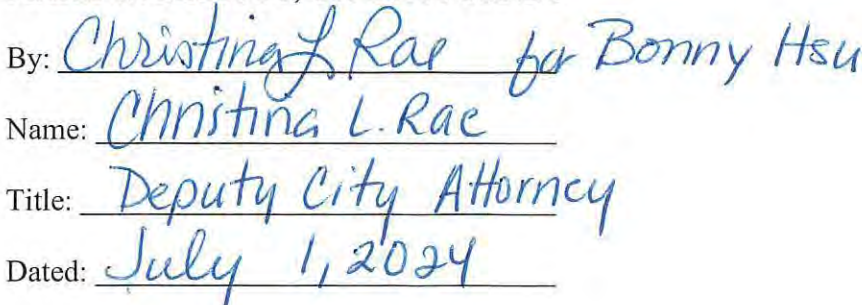 By: Christina L Rae for Bonny Hsu
Name: Christina L. Rae
Title: Deputy City Attorney
Dated: July 1, 2024